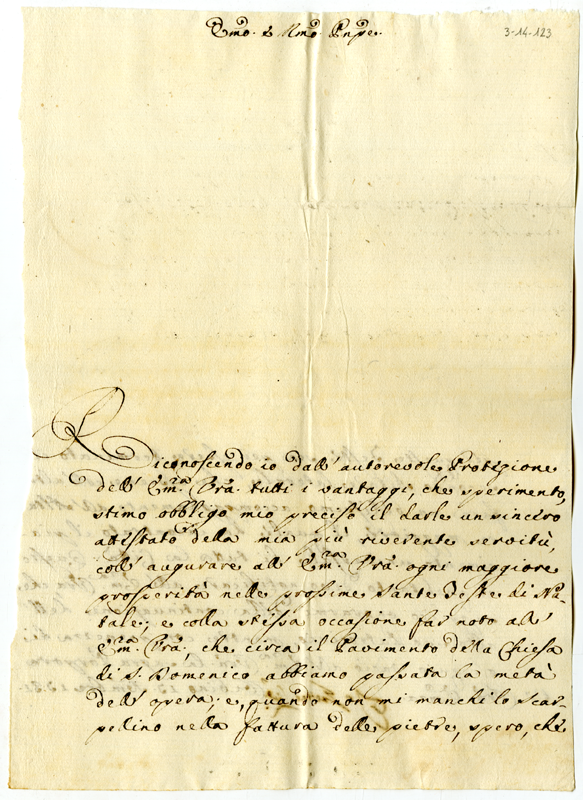 Emo. e Rmo. Pnpe.
3-14-123
Riconoscendo io dall' autorevole Protezione
dell' Emᵃ. Vrâ. tutti i vantaggi, che sperimento,
stimo obbligo mio preciso il darle un sincero
attestato della mia più riverente servitù,
coll' augurare all' Emᵃ. Vrâ. ogni maggiore
prosperità nelle prossime sante Feste di Na-
tale; e colla stessa occasione far noto all'
Emᵃ. Vrâ., che circa il Pavimento della Chiesa
di S. Domenico abbiamo passata la metà
dell' opera; e, quando non mi manchi lo scar-
pellino nella fattura delle pietre, spero, che